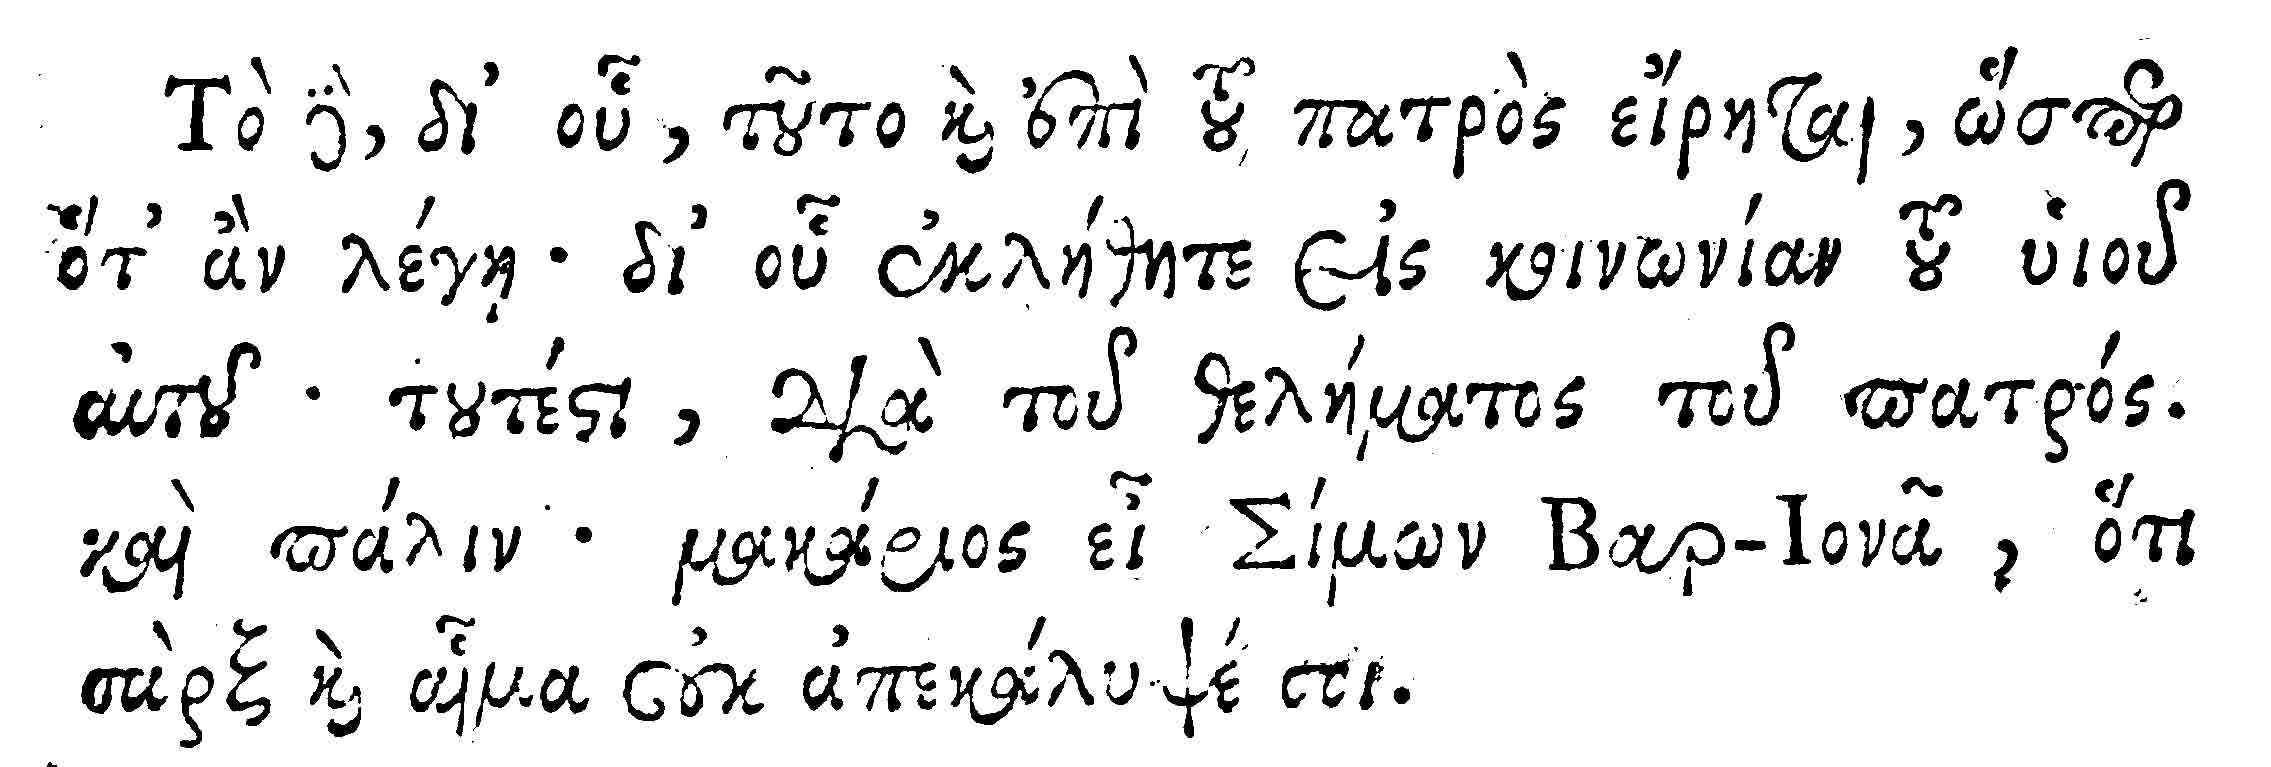 Τὸ δὲ, δι’ οὗ, τοῦτο καὶ ἐπὶ τοῦ πατρὸς εἴρηται, ὥσπερ
ὅτ’ ἂν λέγῃ· δι’ οὗ ἐκλήθητε εἰς κοινωνίαν τοῦ υἱοῦ
αὐτοῦ· τουτέστι, διὰ τοῦ θελήματος τοῦ πατρός.
καὶ πάλιν· μακάριος εἶ Σίμων Βαρ-Ιονᾶ, ὅτι
σὰρξ καὶ αἷμα οὐκ ἀπεκάλυψέ σοι.